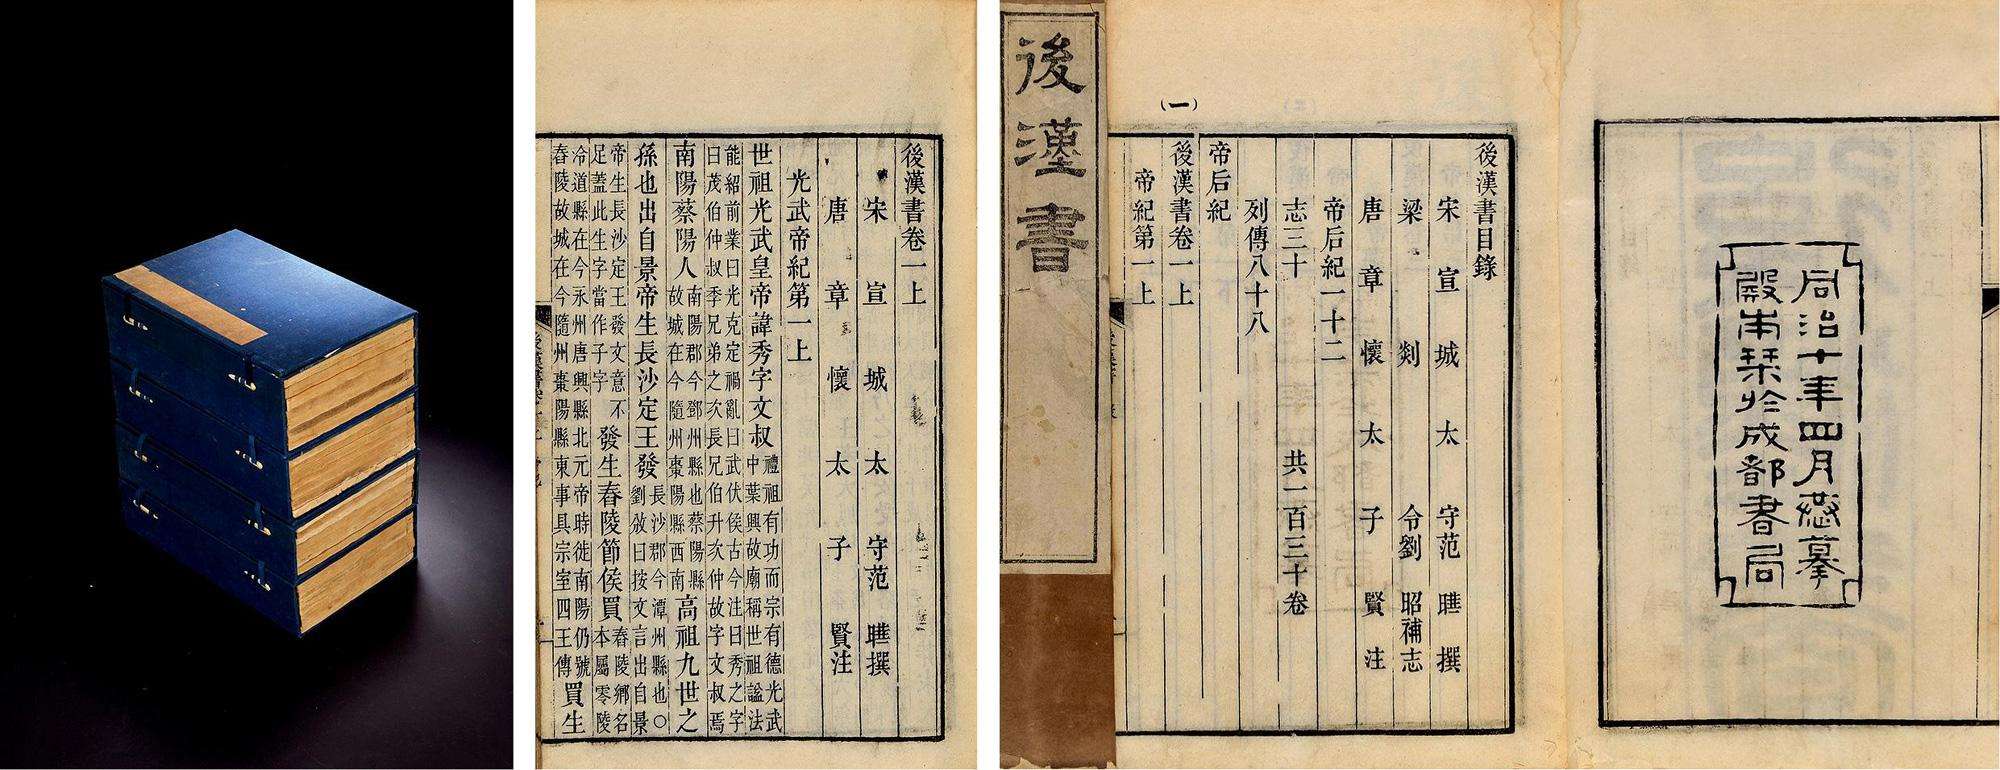 後漢書卷一上
宋宣城太守范曄撰
唐章懷太子賢注
光武帝紀第一上
世祖光武皇帝諱秀字文叔禮祖有功而宗有德光武中葉興故廟稱世祖諡法
能紹前業曰光克定禍亂曰武伏侯古今注曰秀之字曰茂伯仲叔季兄弟之次長兄伯升次仲故字文叔焉
南陽蔡陽人南陽郡今鄧州縣也蔡陽縣故城在今隨州棗陽縣西南高祖九世之
孫也出自景帝生長沙定王發長沙郡今潭州縣也○劉攽曰按文言出自景
帝生長沙定王發文意不足蓋此生字當作子字發生舂陵節侯買舂陵鄉名本屬零陵
冷道縣在今永州唐興縣北元帝時徙南陽仍號舂陵故城在今隨州棗陽縣東事具宗室四王傳買生
同治十年四月恭摹
殿本栞於成都書局
後漢書目錄
宋宣城太守范曄撰
梁剡令劉昭補志
唐章懷太子賢注
帝后紀一十二
志三十 共一百三十卷
列傳八十八
帝后紀
後漢書卷一上
帝紀第一上
(一)
後漢書